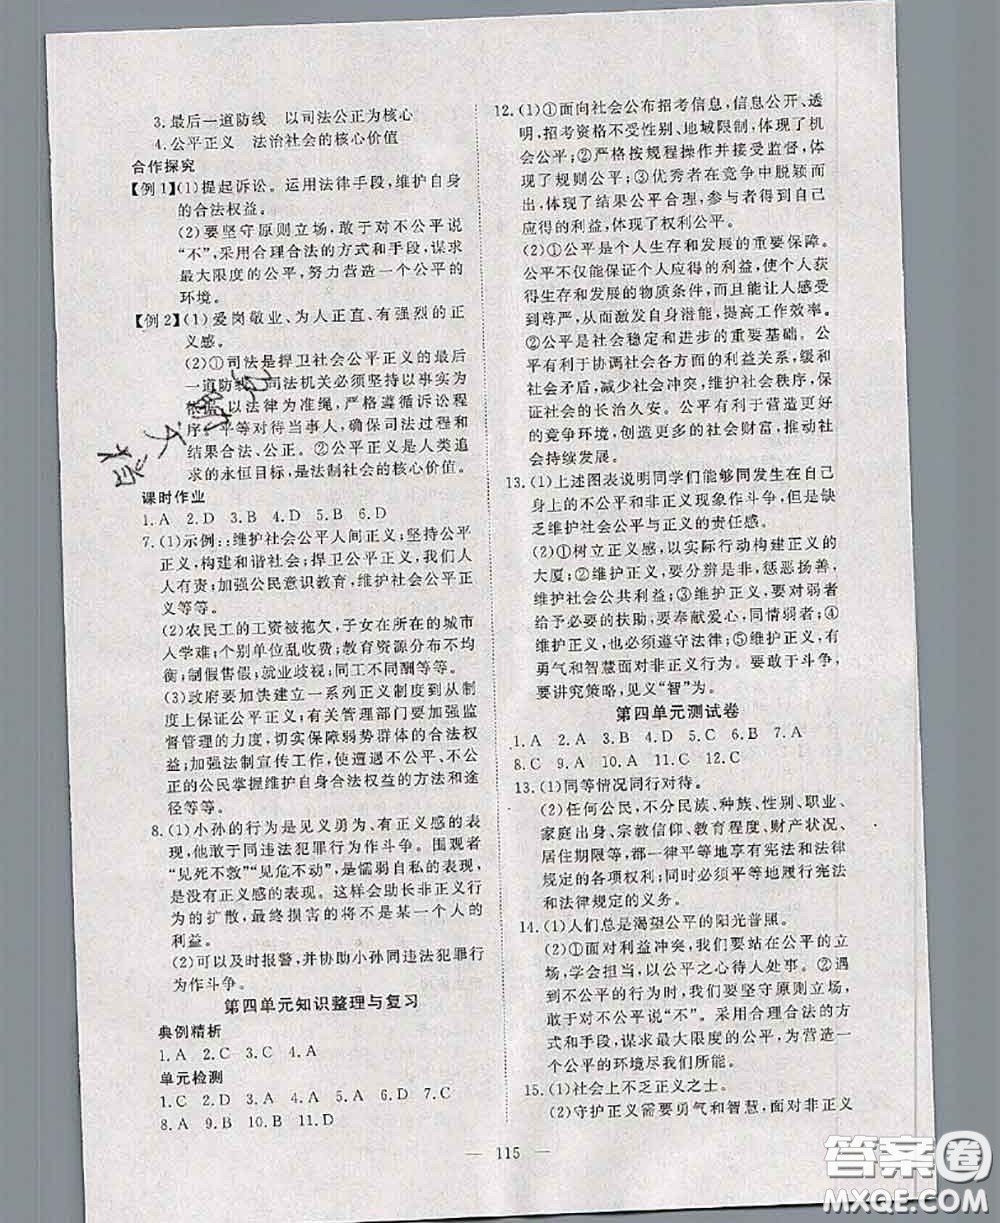 3. 最后一道防线　以司法公正为核心
4. 公平正义　法治社会的核心价值
合作探究
【例1】(1)提起诉讼。运用法律手段,维护自身
的合法权益。
(2)要坚守原则立场,敢于对不公平说
“不”,采用合理合法的方式和手段,谋求
最大限度的公平,努力营造一个公平的
环境。
【例2】(1)爱岗敬业、为人正直、有强烈的正
义感。
(2)①司法是捍卫社会公平正义的最后
一道防线,司法机关必须坚持以事实为
以法律为准绳,严格遵循诉讼程
序。平等对待当事人,确保司法过程和
结果合法、公正。②公平正义是人类追
求的永恒目标,是法制社会的核心价值。
课时作业
1. A　2. D　3. B　4. B　5. B　6. D
7. (1)示例::维护社会公平人间正义;坚持公平
正义,构建和谐社会;捍卫公平正义,我们人
人有责;加强公民意识教育,维护社会公平正
义等等。
(2)农民工的工资被拖欠,子女在所在的城市
入学难;个别单位乱收费;教育资源分布不均
衡;制假售假;就业歧视;同工不同酬等等。
(3)政府要加快建立一系列正义制度到从制
度上保证公平正义;有关管理部门要加强监
督管理的力度,切实保障弱势群体的合法权
益;加强法制宣传工作,使遭遇不公平、不公
正的公民掌握维护自身合法权益的方法和途
径等等。
8. (1)小孙的行为是见义勇为、有正义感的表
现,他敢于同违法犯罪行为作斗争。围观者
“见死不救”“见危不动”,是懦弱自私的表现,
是没有正义感的表现。这样会助长非正义行
为的扩散,最终损害的将不是某一个人的
利益。
(2)可以及时报警,并协助小孙同违法犯罪行
为作斗争。
第四单元知识整理与复习
典例精析
1. A　2. C　3. C　4. A
单元检测
1. C　2. D　3. D　4. A　5. B　6. D　7. C
8. A　9. D　10. B　11. B
12. (1)①面向社会公布招考信息,信息公开、透
明,招考资格不受性别、地域限制,体现了机
会公平;②严格按规程操作并接受监督,体现
了规则公平;③优秀者在竞争中脱颖而
出,体现了结果公平合理,参与者获得自己应
得的利益,体现了权利公平。
(2)①公平是个人生存和发展的重要保障。
公平不仅能保证个人应得的利益,使个人获
得生存和发展的物质条件,而且能让人感受
到尊严,从而激发自身潜能,提高工作效率。
②公平是社会稳定和进步的重要基础。公
平有利于协调社会各方面的利益关系,缓和
社会矛盾,减少社会冲突,维护社会秩序,保
证社会的长治久安。公平有利于营造更好
的竞争环境,创造更多的社会财富,推动社会
持续发展。
13. (1)上述图表说明同学们能够同发生在自己
身上的不公平和非正义现象作斗争,但是缺
乏维护社会公平与正义的责任感。
(2)①树立正义感,以实际行动构建正义的
大厦;②维护正义,要分辨是非,惩恶扬善,
维护社会公共利益;③维护正义,要对弱者
给予必要的扶助,要奉献爱心,同情弱者;④
维护正义,也必须遵守法律;⑤维护正义,有
勇气和智慧面对非正义行为。要敢于斗争,
要讲究策略,见义“智”为。
第四单元测试卷
1. A　2. A　3. A　4. D　5. C　6. B　7. A
8. C　9. A　10. A　11. C　12. C
13. (1)同等情况同行对待。
(2)任何公民,不分民族、种族、性别、职业、
家庭出身、宗教信仰、教育程度、财产状况、
居住期限等,都一律平等地享有宪法和法律
规定的各项权利;同时必须平等地履行宪法
和法律规定的义务。
14. (1)人们总是渴望公平的阳光普照。
(2)①面对利益冲突,我们要站在公平的立
场,学会担当,以公平之心待人处事。②遇
到不公平的行为时,我们要坚守原则立场,
敢于对不公平说“不”。采用合理合法的方
式和手段,谋求最大限度的公平,为营造一
个公平的环境尽我们所能。
15. (1)社会上不乏正义之士。
(2)守护正义需要勇气和智慧,面对非正义
— 115 —
答案圈
MXQE.COM